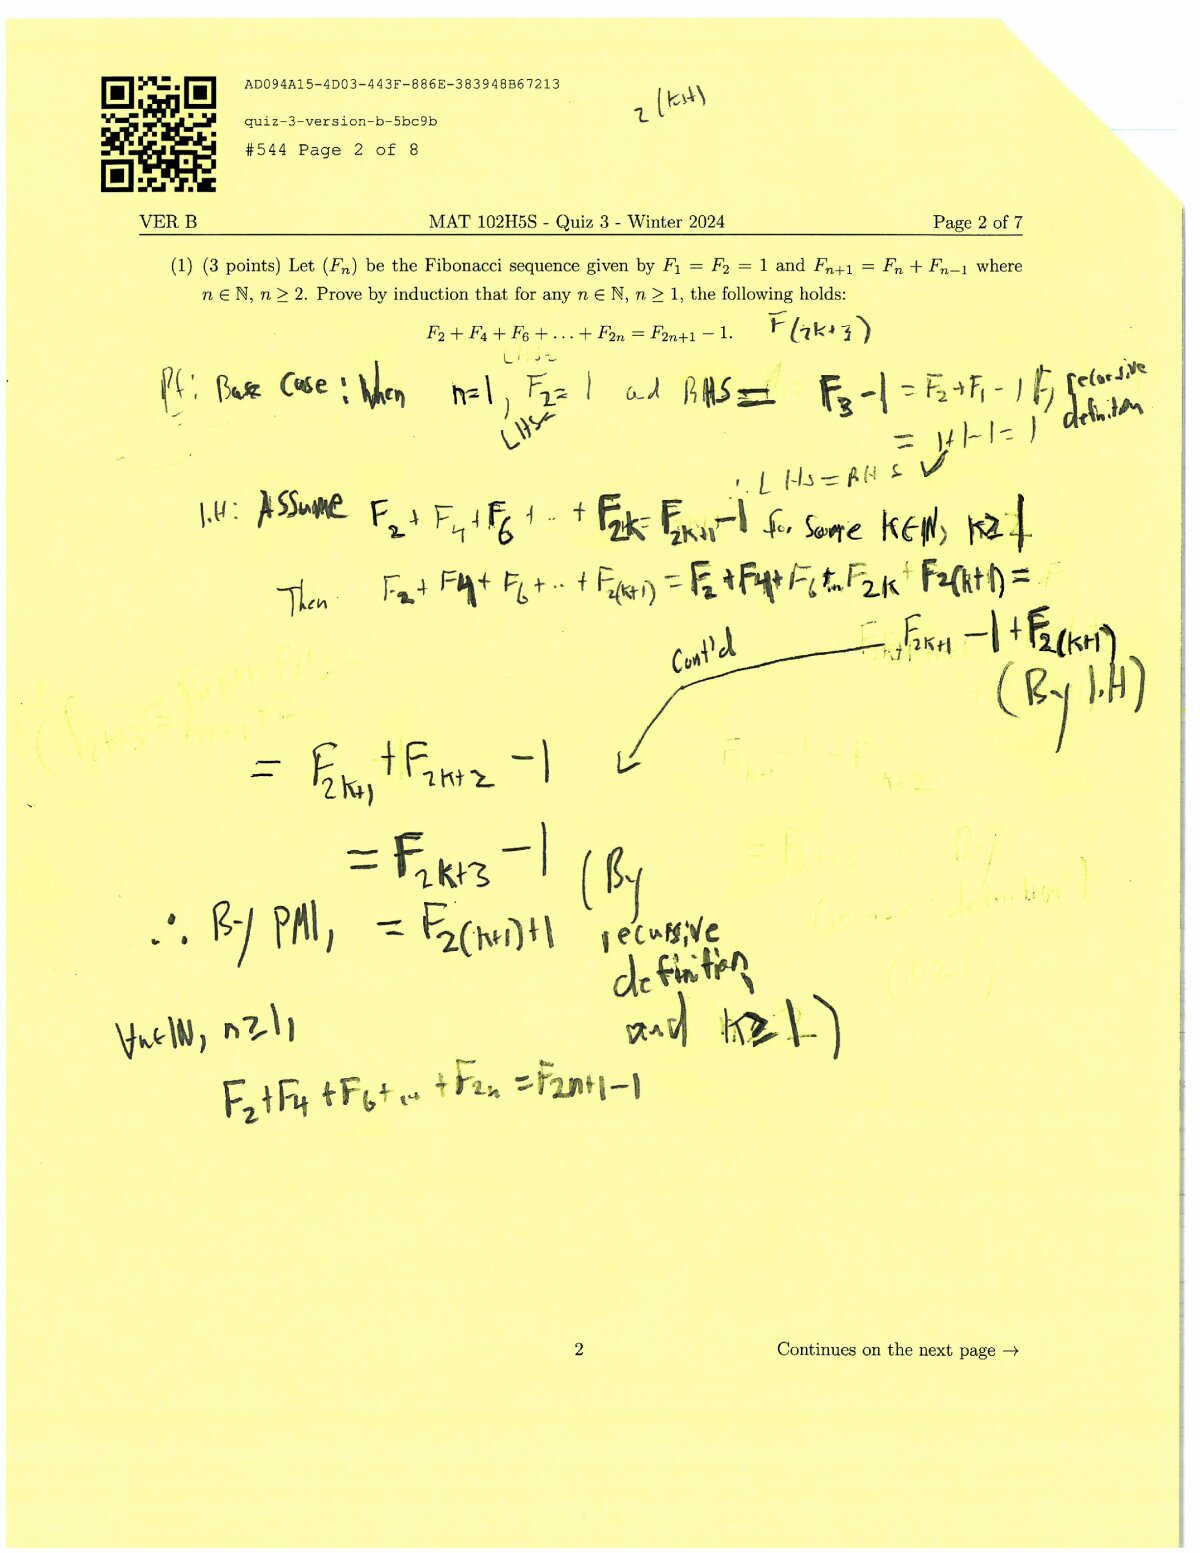 AD094A15-4D03-443F-886E-383948B67213
quiz-3-version-b-5bc9b
#544 Page 2 of 8
2(k+1)
VER B MAT 102H5S - Quiz 3 - Winter 2024 Page 2 of 7
(1) (3 points) Let (Fₙ) be the Fibonacci sequence given by F₁ = F₂ = 1 and Fₙ₊₁ = Fₙ + Fₙ₋₁ where
n ∈ ℕ, n ≥ 2. Prove by induction that for any n ∈ ℕ, n ≥ 1, the following holds:
F₂ + F₄ + F₆ + … + F₂ₙ = F₂ₙ₊₁ − 1.
F(2k+3)
Pf: Base Case: When n=1, F₂ = 1 and RHS = F₃ − 1 = F₂ + F₁ − 1
LHS=
recursive
definiton
= 1+1−1 = 1
∴ LHS = RHS ✓
I.H: Assume F₂ + F₄ + F₆ + .. + F₂ₖ = F₂ₖ₊₁ − 1 for some k∈ℕ, k≥1
Then F₂ + F₄ + F₆ + .. + F₂₍ₖ₊₁₎ = F₂ + F₄ + F₆ + ... F₂ₖ + F₂₍ₖ₊₁₎ =
F₂ₖ₊₁ − 1 + F₂₍ₖ₊₁₎
Cont'd
(By I.H)
= F₂ₖ₊₁ + F₂ₖ₊₂ − 1
= F₂ₖ₊₃ − 1 (By
recursive
definition
and k≥1)
∴ By PMI, = F₂₍ₖ₊₁₎₊₁
∀n∈ℕ, n≥1,
F₂ + F₄ + F₆ + ... + F₂ₙ = F₂ₙ₊₁ − 1
2 Continues on the next page →